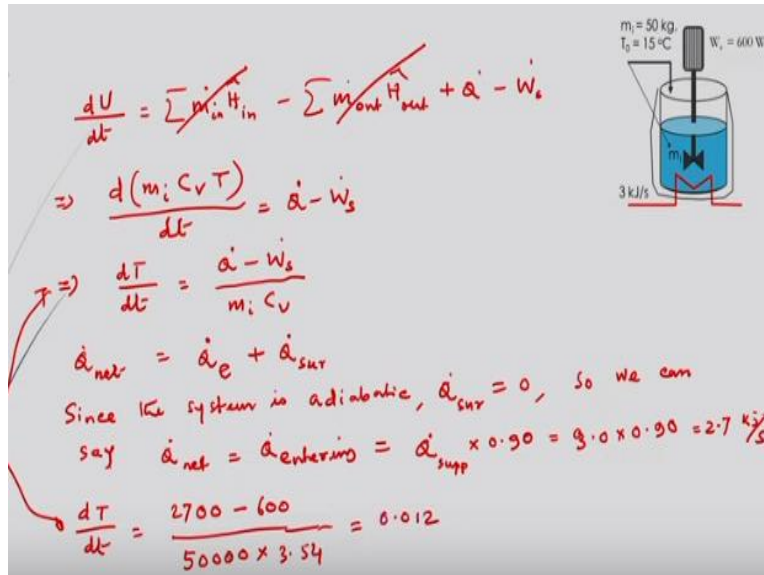 mᵢ = 50 kg,
T₀ = 15 ºC
Wₛ = 600 W
mᵢ
3 kJ/s
dU/dt = ∑ ṁin Ĥin - ∑ ṁout Ĥout + Q̇ - Ẇs
=> d(mi Cv T)/dt = Q̇ - Ẇs
=> dT/dt = (Q̇ - Ẇs)/(mi Cv)
Q̇net = Q̇e + Q̇sur
Since the system is adiabatic, Q̇sur = 0, so we can
say Q̇net = Q̇entering = Q̇supp × 0.90 = 3.0 × 0.90 = 2.7 kJ/s
dT/dt = (2700 - 600)/(50000 × 3.54) = 0.012